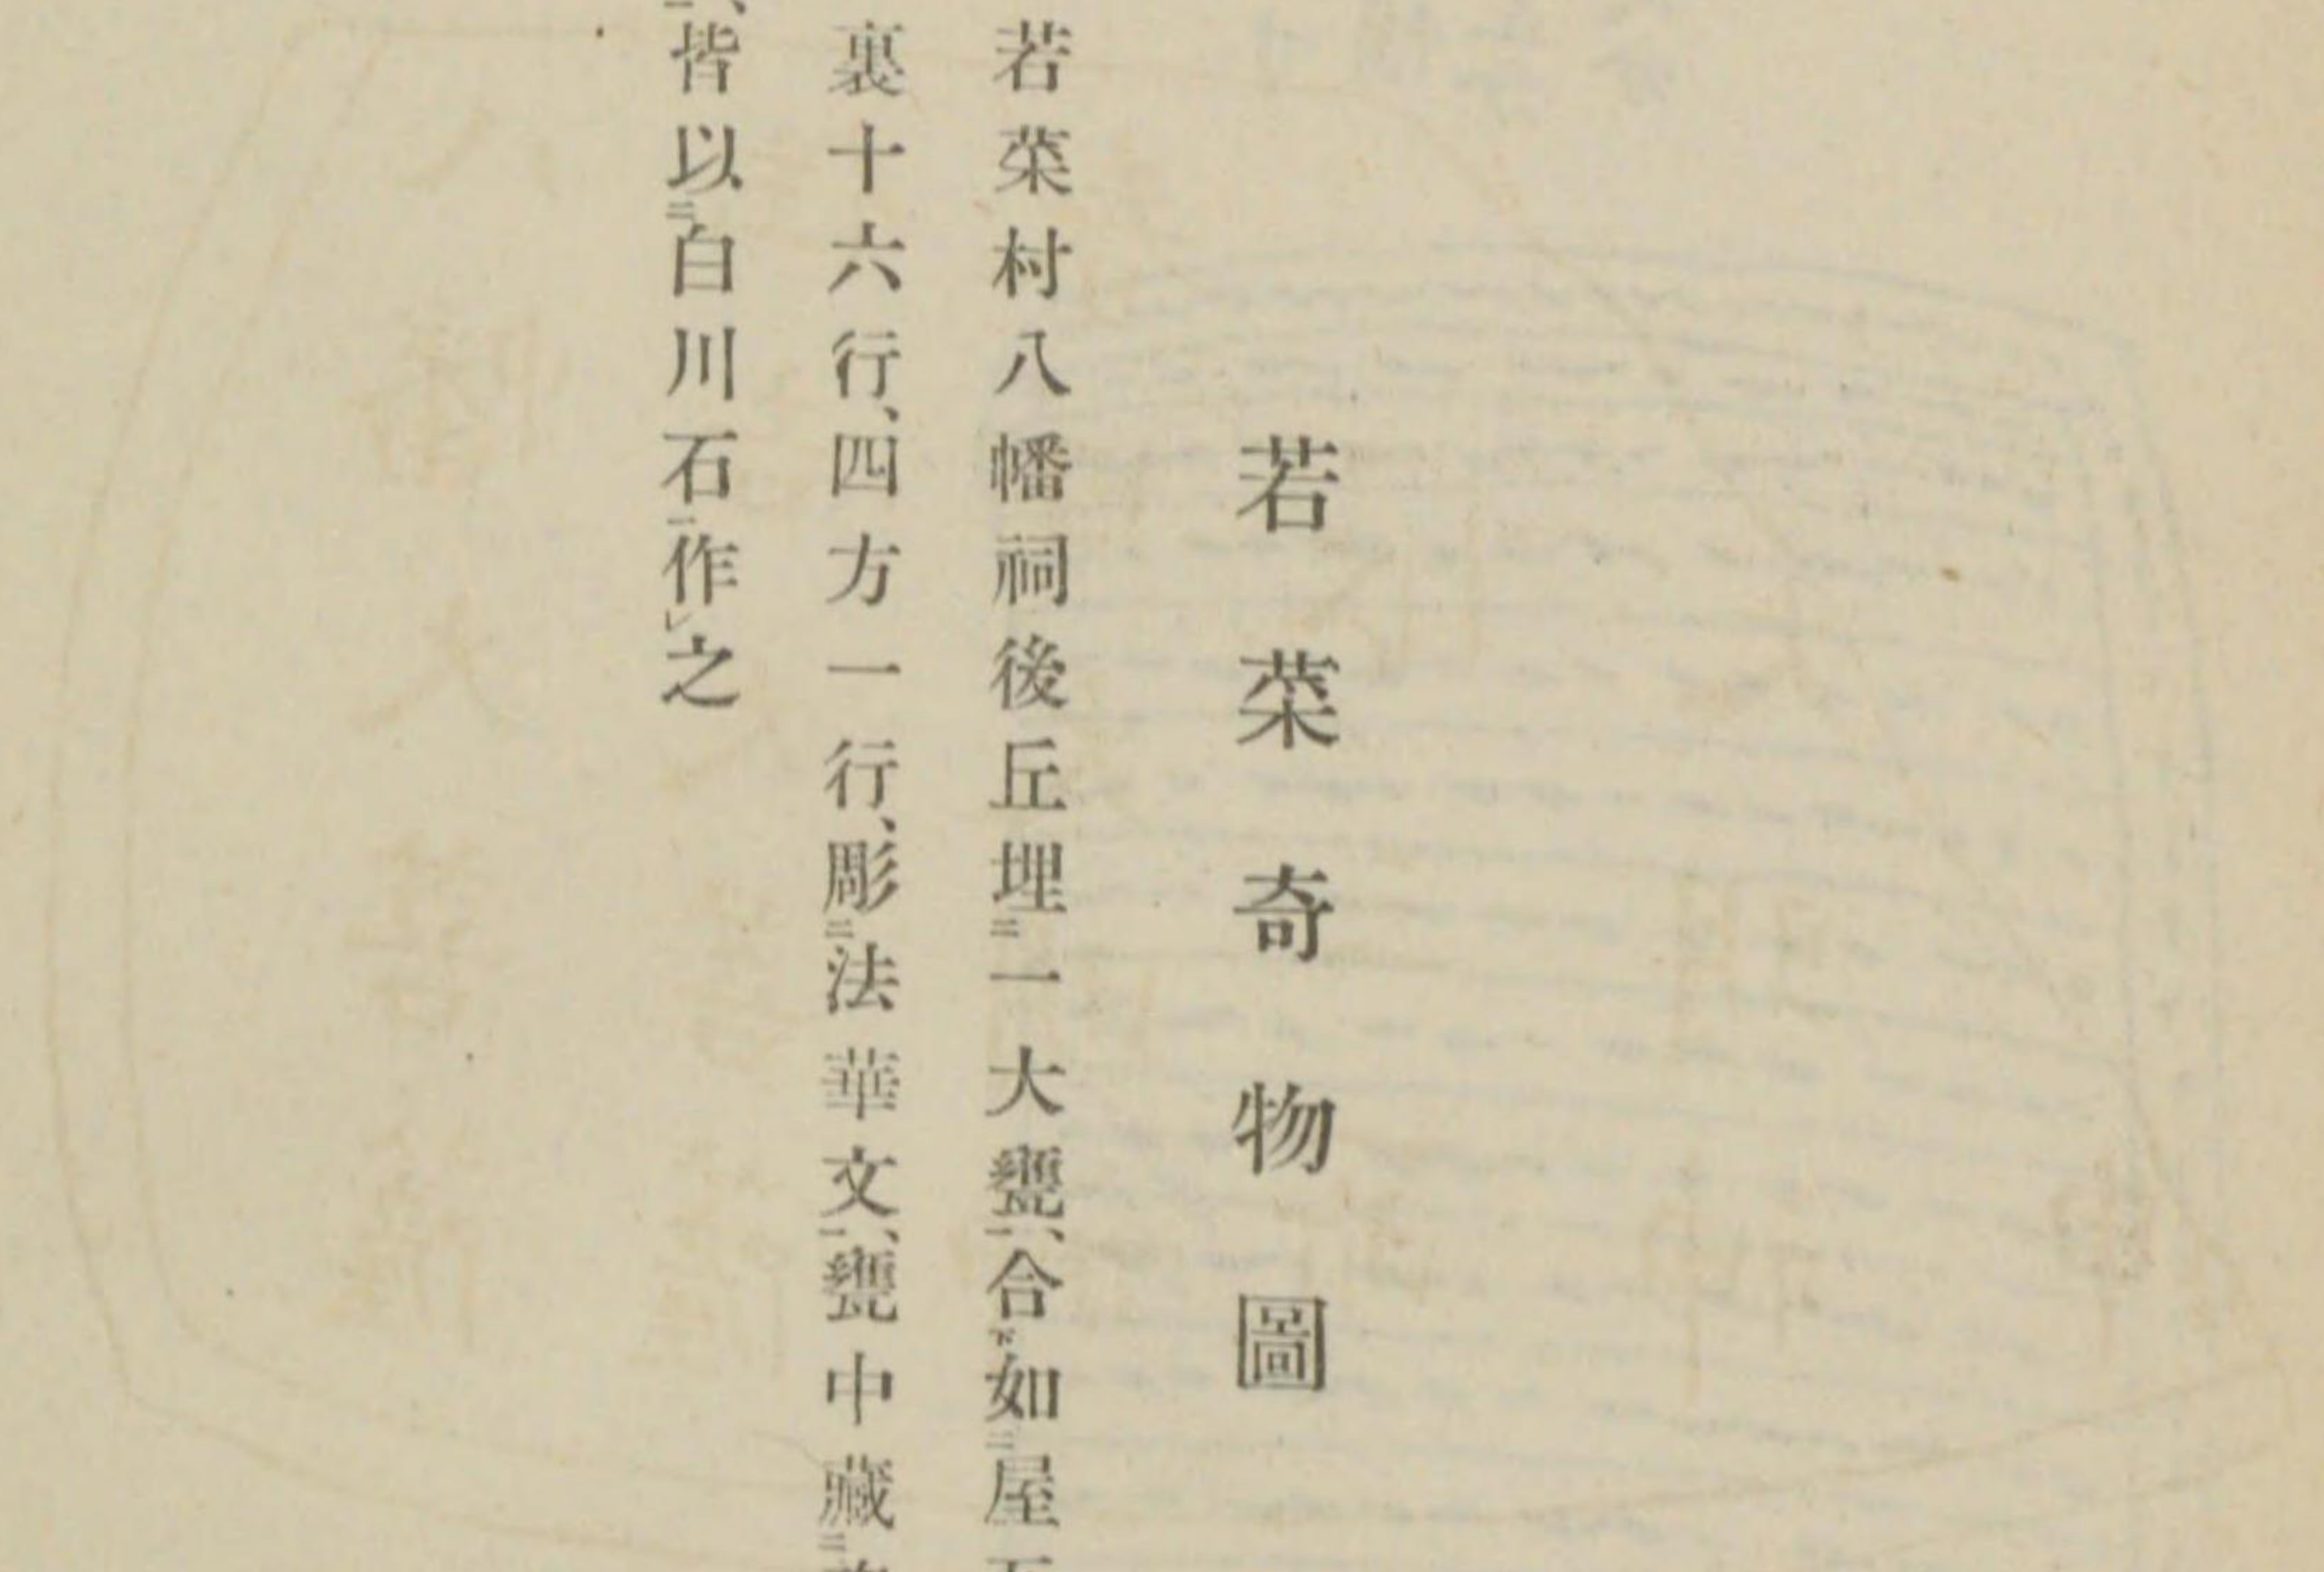 若菜奇物圖
若菜村八幡祠後丘埋㆓一大甕㆒、合㆘如㆓屋
裏十六行、四方一行、彫㆓法華文㆒、甕中藏㆓
㆒、皆以㆓白川石㆒作㆑之